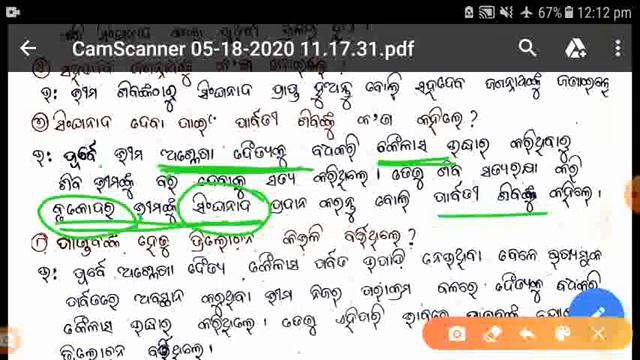 67% 12:12 pm
CamScanner 05-18-2020 11.17.31.pdf
ଉ: ଭୀମ ଶିବଙ୍କଠାରୁ ସିଂହନାଦ ପ୍ରାପ୍ତ ହୁଅନ୍ତୁ ବୋଲି ସହଦେବ ଜଗନ୍ନାଥଙ୍କୁ ଜଣାଇଲେ
ସିଂହନାଦ ଦେବା ପାଇଁ ପାର୍ବତୀ ଶିବଙ୍କୁ କ'ଣ କହିଲେ ?
ଉ: ପୂର୍ବେ ଭୀମ ଦୈତ୍ୟକୁ ବଧକରି କୈଳାସ ଉଦ୍ଧାର କରିଥିବାରୁ
ଶିବ ଭୀମଙ୍କୁ ବର ଦେବାକୁ ସତ୍ୟ କରିଥିଲେ । ତେଣୁ ଶିବ ସତ୍ୟରକ୍ଷା କରି
ବୃକୋଦର ଭୀମଙ୍କୁ ସିଂହନାଦ ପ୍ରଦାନ କରନ୍ତୁ ବୋଲି ପାର୍ବତୀ ଶିବଙ୍କୁ କହିଲେ ।
ପାଣ୍ଡବଙ୍କ ହେତୁ ତ୍ରିଲୋଚନ କିଭଳି ବର୍ତ୍ତିଥିଲେ ?
ଉ: ପୂର୍ବେ ଦୈତ୍ୟ କୈଳାସ ପର୍ବତ ଉପାଡ଼ି ନେଇଥିବା ବେଳେ
ପର୍ବତରେ ଅବସ୍ଥାନ କରୁଥିବା ଭୀମ ନିଜର ପରାକ୍ରମ ବଳରେ ଦୈତ୍ୟକୁ ବଧକରି
କୈଳାସ ଉଦ୍ଧାର କରିଥିଲେ । ତେଣୁ ଏହିପରି ଭାବରେ
ତ୍ରିଲୋଚନ ବର୍ତ୍ତିଥିଲେ ।